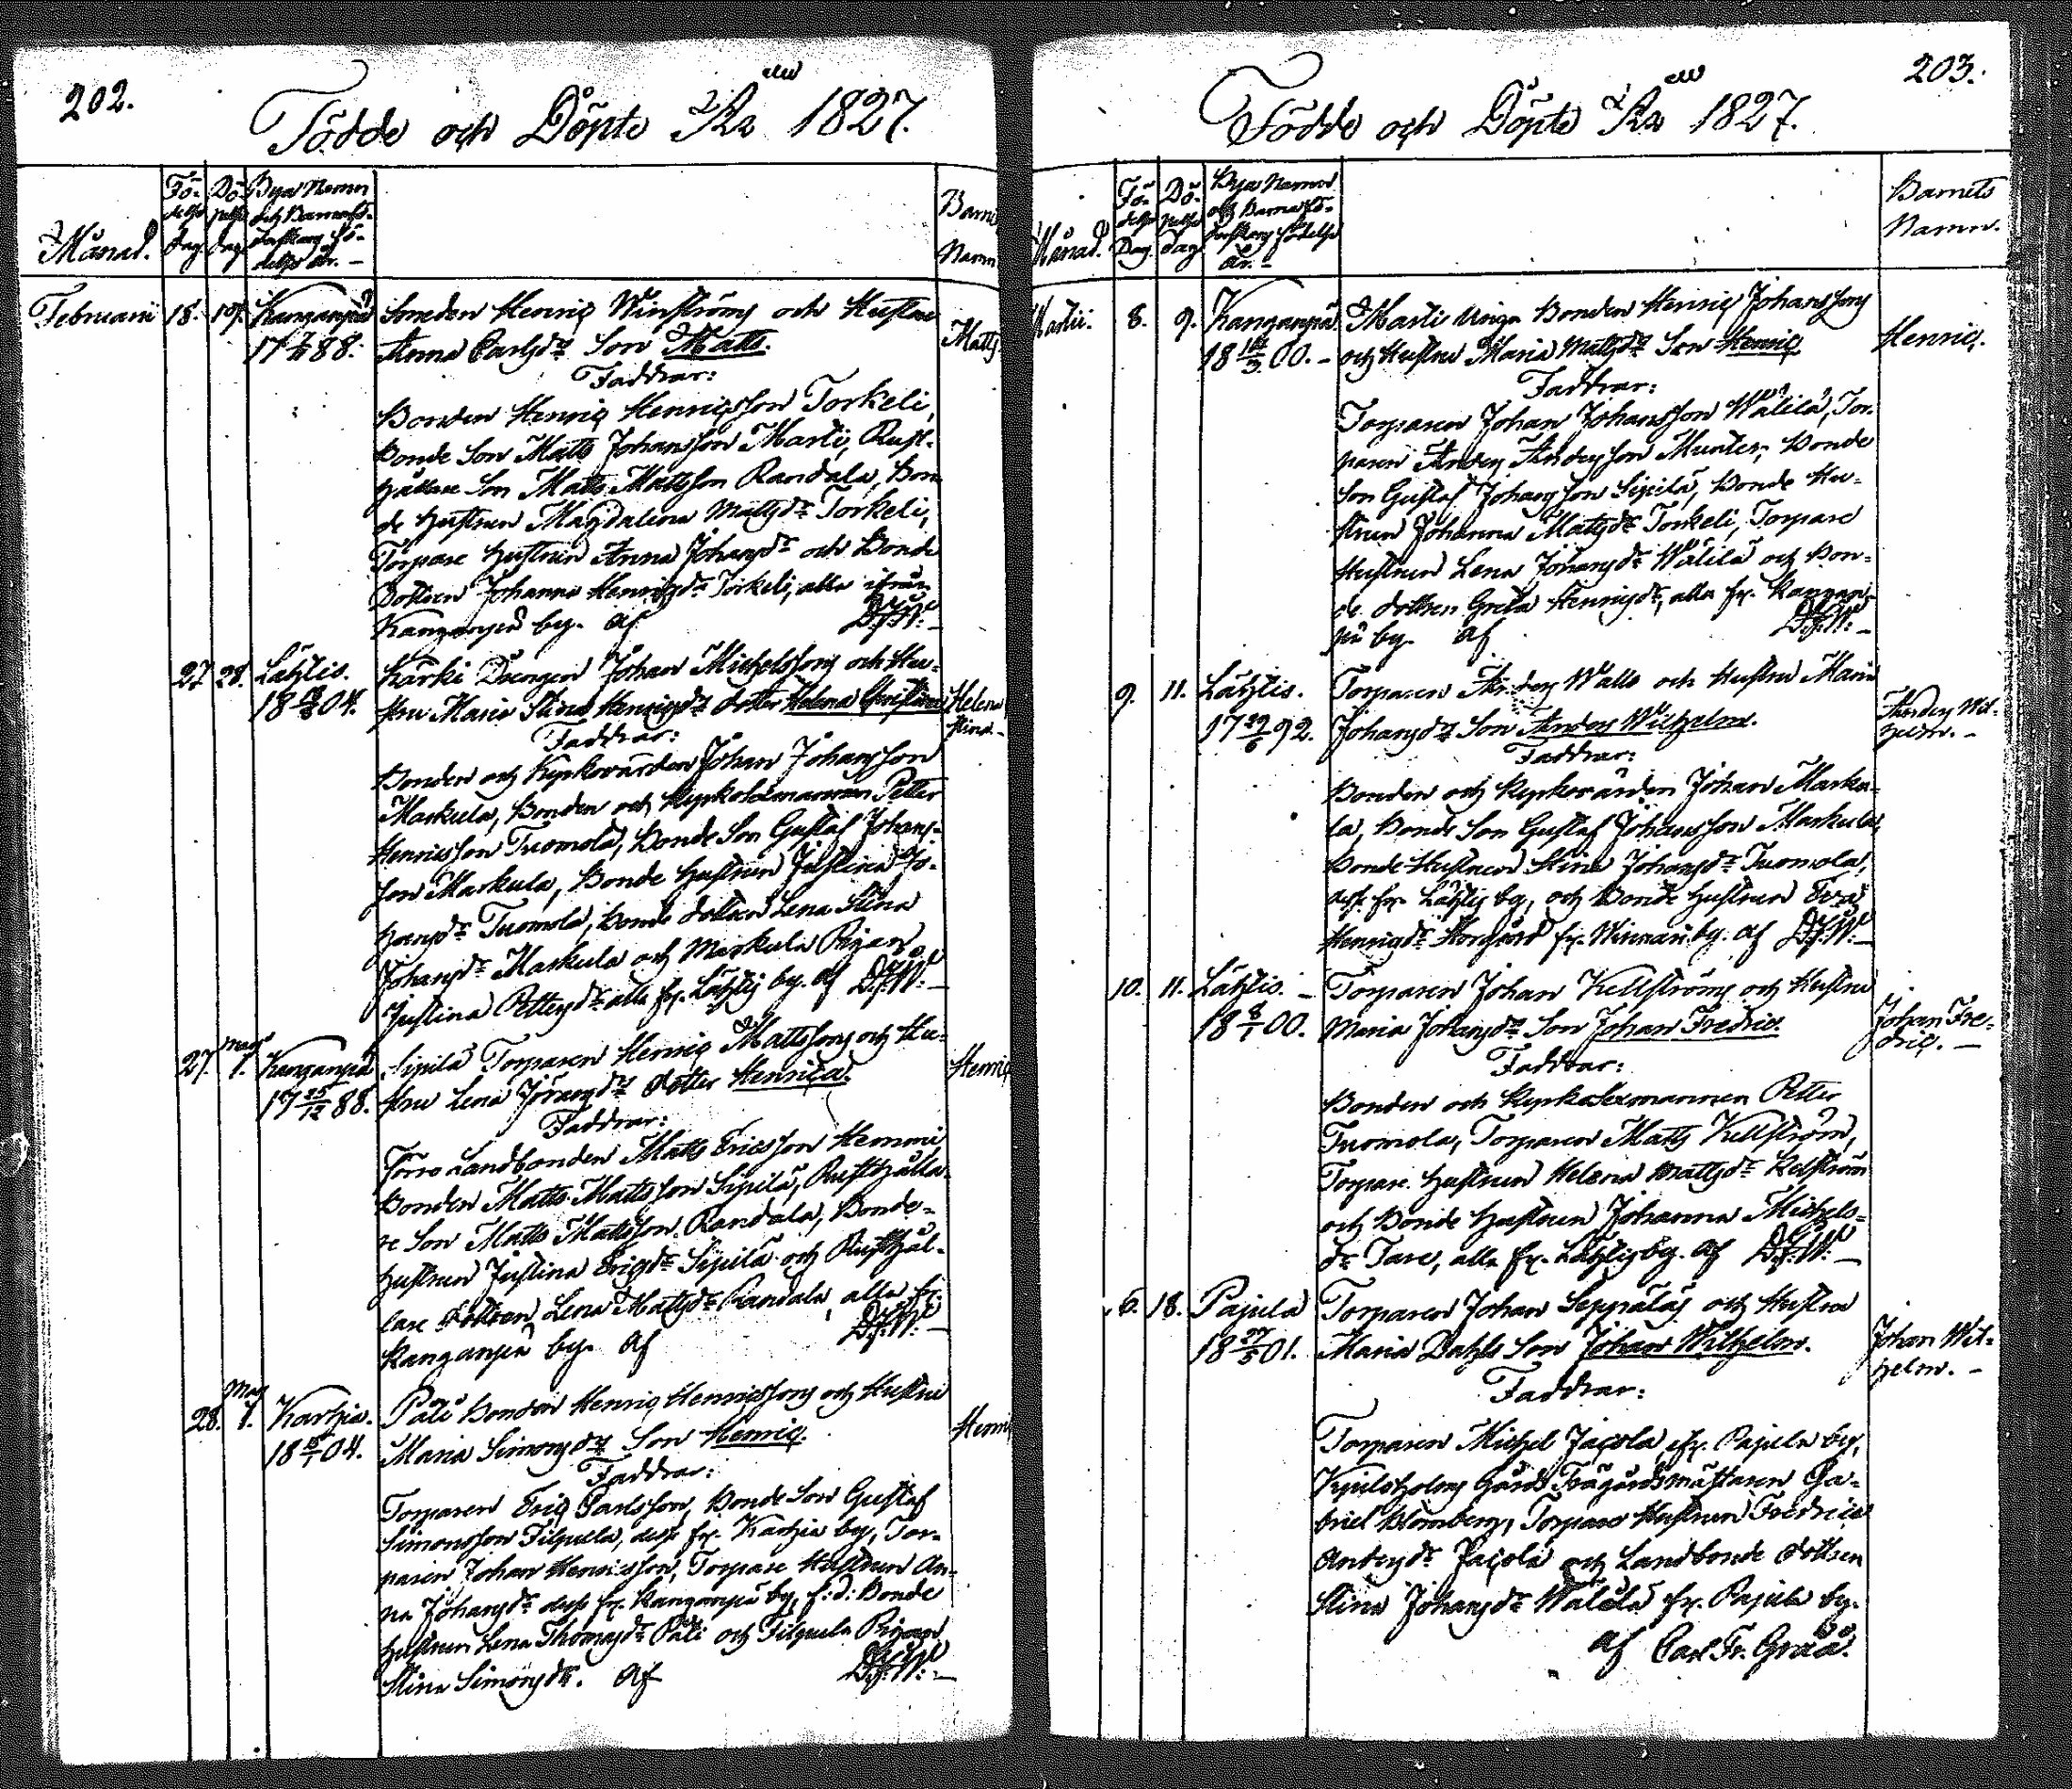 202.
Födde och Döpte År 1827.
Månad.
Fö-
delse
dag
Dö-
pelse
dag
Bya Namn
och Barnafö-
derskans Fö-
delse År. –
Barn
Namn
Februarii 18. 19. Kanganpä Smeden Henric Winströms och Hustru
Matts.
17 88. Anna Carlsdr Son Matts.
Faddrar:
Bonden Henric Henricsson Torkeli,
Bonde Son Matts Johansson Marti, Rust-
hållare Son Matts Mattsson Randala, Bon
de Hustrun Magdalena Mattsdr Torkeli,
Torpare Hustrun Anna Johansdr och Bonde
Dottren Johanna Henricsdr Torkeli, alla ifrån
Kanganpä by. af D.J.W. –
27 28. Lahtis. Kärki Drengen Johan Michelssons och Hu-
18 04. stru Maria Stina Henricsdr dotter Helena Christina
Helena
Stina –
Faddrar:
Bonden och Kyrkovärden Johan Johansson
Markula, Bonden och Kyrkosexmannen Petter
Henricsson Tuomola, Bonde Son Gustaf Johans-
son Markula, Bonde Hustrun Justina Jo-
hansdr Tuomola, Bonde dottren Lena Stina
Johansdr Markula och Markula Pigan
Justina Pettersdr alla fr. Lahtis by. af D.J.W. –
27. Mars 1. Kanganpä Sipilä Torparen Henric Mattssons och Hu-
17 25/12 88. stru Lena Göransdr dotter Henrica.
Henric
Faddrar:
Förre Landbonden Matts Ericsson Hemmi
Bonden Matts Mattsson Sipilä, Rusthålla-
re Son Matts Mattsson Randala, Bonde-
Hustrun Justina Ericsdr Sipilä och Rusthål-
lare Dottren Lena Mattsdr Randala, alla fr.
Kanganpä by. af D.J.W. –
28. Mars 1. Karhia. Päti Bonden Henric Henricssons och Hustru
18 04. Maria Simonsdr Son Henric.
Henri
Faddrar:
Torparen Eric Carlsson, Bonde Son Gustaf
Simonsson Filpula, desse fr. Karhia by, Tor-
paren Johan Henricsson, Torpare Hustrun An-
na Johansdr desse fr. Kanganpä by, f:d: Bonde
Hustrun Lena Thomasdr Päti och Filpula Pigan
Stina Simonsdr. af D.J.W. –
203.
Födde och Döpte År 1827.
Månad.
Fö-
delse
Dag.
Dö-
pelse
Dag
Bya Namn
och Barnafö-
derskans födelse
År. –
Barnets
Namn.
Martii. 8. 9. Kanganpä Marti Unga Bonden Henric Johanssons
18 00. – och Hustru Maria Mattsdr Son Henric
Henric.
Faddrar:
Torparen Johan Johansson Wälilä, Tor-
paren Anders Andersson Munter, Bonde
Son Gustaf Johansson Sipilä, Bonde Hu-
strun Johanna Mattsdr Torkeli, Torpare
Hustrun Lena Johansdr Wälilä och Bon-
de dottren Greta Henricsdr, alla fr. Kangan-
pä by. af D.J.W. –
9. 11. Lahtis. Torparen Anders Walls och Hustru Maria
17 92. Johansdr Son Anders Wilhelm.
Anders Wil-
helm. –
Faddrar:
Bonden och Kyrkovärden Johan Marku-
la, Bonde Son Gustaf Johansson Markula,
Bonde Hustrun Stina Johansdr Tuomola,
desse fr. Lahtis by, och Bonde Hustrun Eva
Henricsdr fr. Winnari by. af D.J.W. –
10. 11. Lahtis. – Torparen Johan Kellströms och Hustru
18 8/1 00. Maria Johansdr Son Johan Fredric.
Johan Fre-
dric. –
Faddrar:
Bonden och Kyrkosexmannen Petter
Tuomola, Torparen Matts Kellström,
Torpare Hustrun Helena Mattsdr Kellström
och Bonde Hustrun Johanna Michels-
dr Tare, alla fr. Lahtis by. af D.J.W. –
6. 18. Pajula Torparen Johan Seppäläs och Hustru
18 27/5 01. Maria Dahls Son Johan Wilhelm.
Johan Wil-
helm. –
Faddrar:
Torparen Michel Jacola, fr. Pajula by,
Gårds Trägårdsmästaren Ga-
briel Blomberg, Torpare Hustrun Fredrica
Andersdr Jacola och Landbonde dottren
Stina Johansdr Wälilä fr. Pajula by.
af Carl Fr. Gråå.